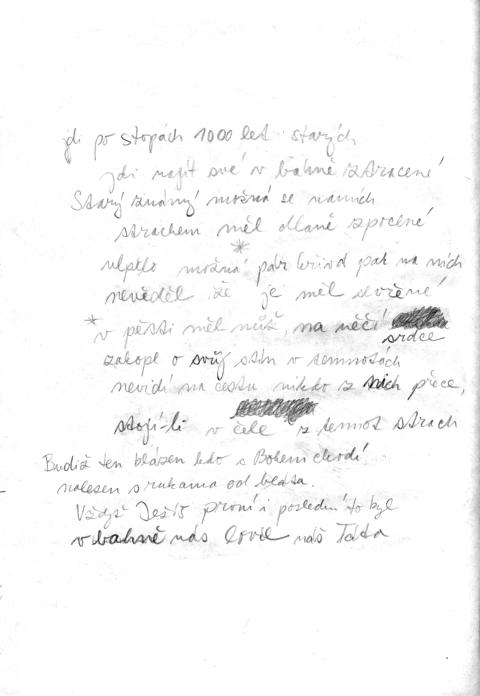 jdi po stopách 1000 let starých
jdi najít své v bahně ztracené
Starý známý možná se na nich
strachem měl dlaně zpocené
*
ulpělo možná pár krůpějí pak na nich
nevěděl že je měl sevřené
* v pěsti měl nůž, na něčí
srdce
zakopl o svůj stín v temnotách
nevidí na cestu nikdo z nich přece,
stojí-li v čele z temnot strach
Budiž ten blázen kdo s Bohem chodí
nalezen s rukama od bláta.
Vždyť Ješto první i poslední to byl
v bahně nás lovil náš Táta